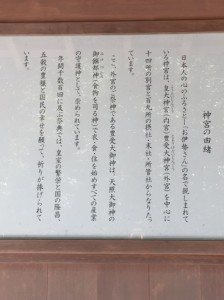 神宮の由緒
日本人の心のふるさと「お伊勢さん」の名で親しまれて
いる神宮は、皇大神宮(内宮)・豊受大神宮(外宮)を中心に
十四所の別宮と百九所の摂社・末社・所管社からなりたっ
ています。
ここ、外宮のご祭神である豊受大御神は、天照大御神の
御饌都神(食物を司る神)で衣・食・住を始めすべての産業
の守護神として、崇められています。
年間千数百回に及ぶ祭典では、皇室の繁栄と国の隆昌、
五穀の豊穣と国民の幸せを願って、祈りが捧げられて
います。